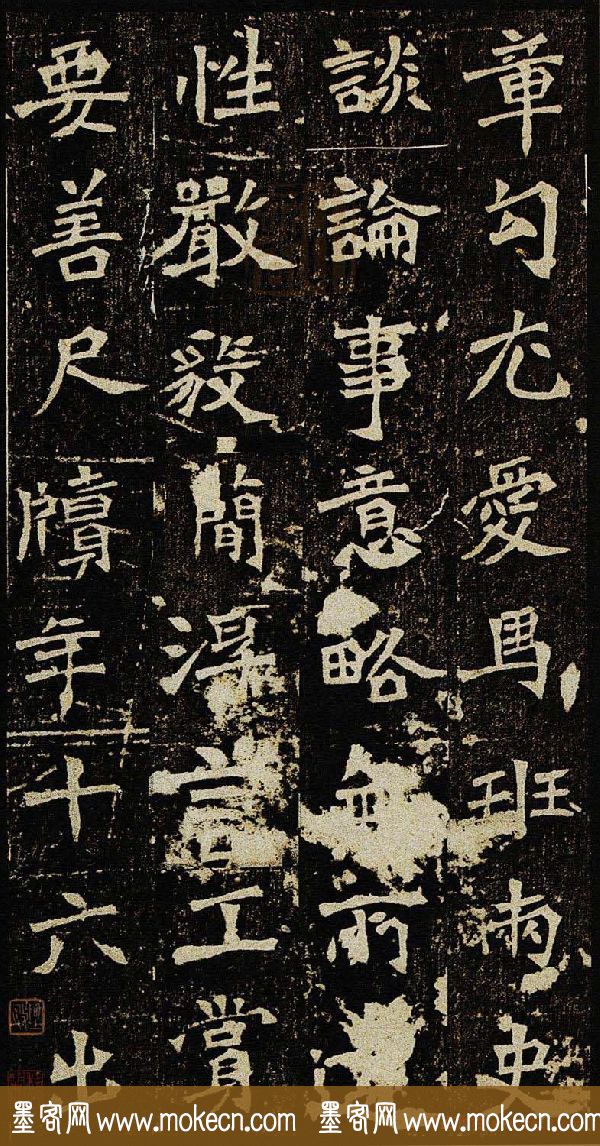 章句尤愛馬班兩史
談論事意略無所滯
性嚴毅簡得言工賞
要善尺牘年十六出
墨客网 www.mokecn.com 墨客网 www.mokecn.com